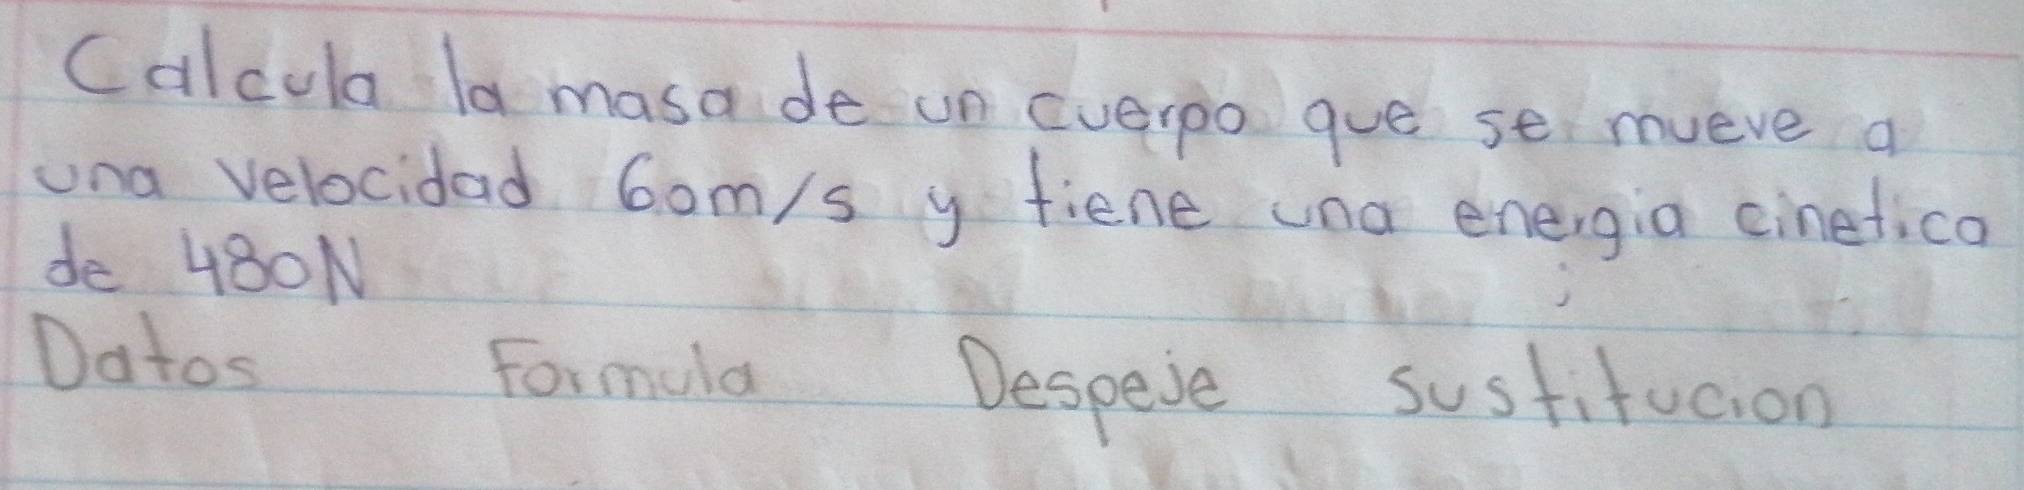 Calcula la masa de un cuerpo que se mueve a
una velocidad 60m/s y tiene una energia cinetica
de 480N
Datos Formula Despeje sustitucion